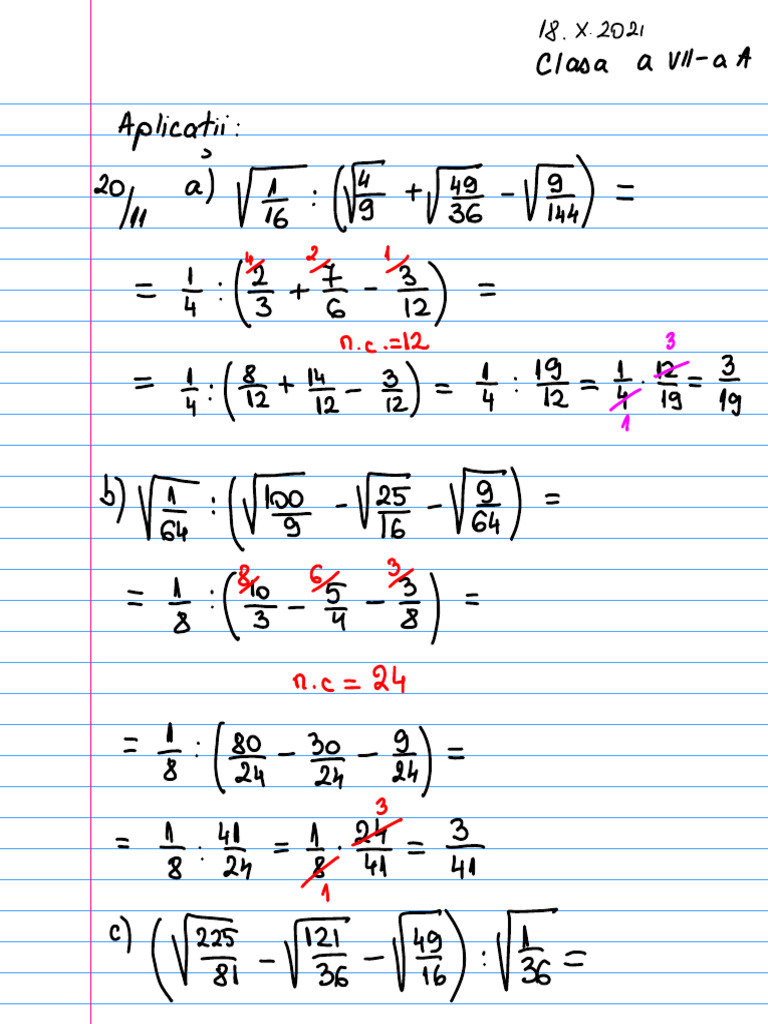 18. X. 2021
Clasa a VII-a A
Aplicații:
20/11 a) √(1/16) : (√(4/9) + √(49/36) - √(9/144)) =
= 1/4 : (⁴⁄2/3 + ²⁄7/6 - ¹⁄3/12) =
n.c.=12
= 1/4 : (8/12 + 14/12 - 3/12) = 1/4 : 19/12 = 1/4 · 12/19 = 3/19
3
1
b) √(1/64) : (√(100/9) - √(25/16) - √(9/64)) =
= 1/8 : (⁸⁄10/3 - ⁶⁄5/4 - ³⁄3/8) =
n.c = 24
= 1/8 : (80/24 - 30/24 - 9/24) =
3
= 1/8 : 41/24 = 1/8 · 24/41 = 3/41
1
c) (√(225/81) - √(121/36) - √(49/16)) : √(1/36) =